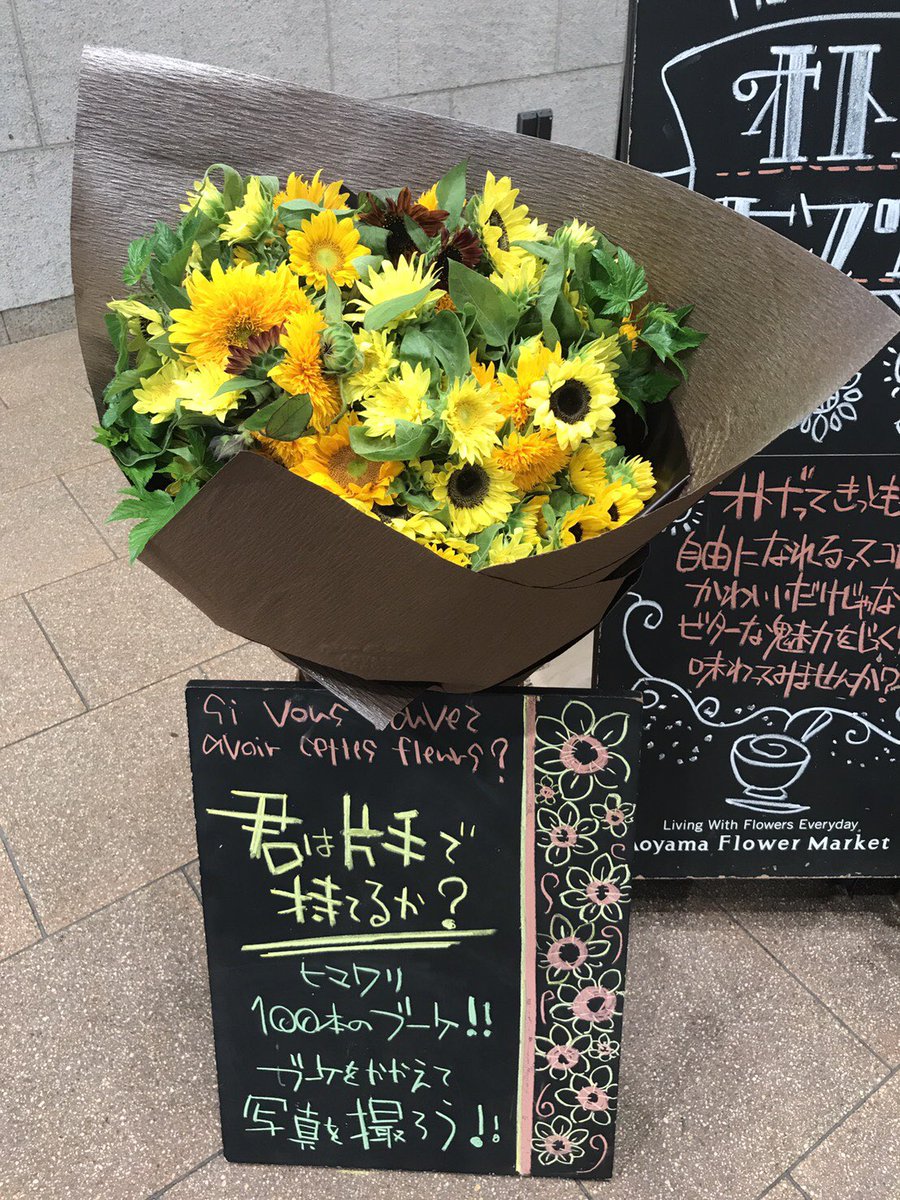 きっとも
自由になれる
かわいいだけじゃな
ビターな魅力をじっく
味わってみませんか?
Living With Flowers Everyday
Aoyama Flower Market
Si Vous
avoir cettes fleurs?
君は片手で
持てるか?
ヒマワリ
100本のブーケ!!
ブーケをかかえて
写真を撮ろう!!